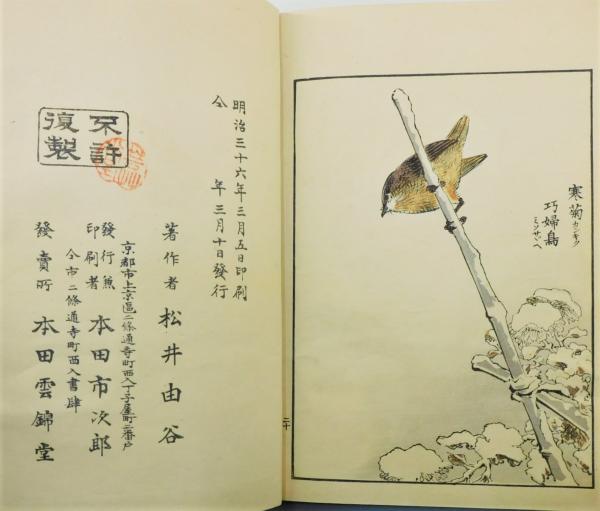 寒菊 カンキク
巧婦鳥 ミソサヾヘ
二十
明治三十六年三月五日印刷
仝　年三月十日發行
不許
復製
著作者　松井由谷
京都市上京區二條通寺町西入丁子屋町二番戸
發行兼
印刷者　本田市次郎
仝市二條通寺町西入書肆
發賣所　本田雲錦堂